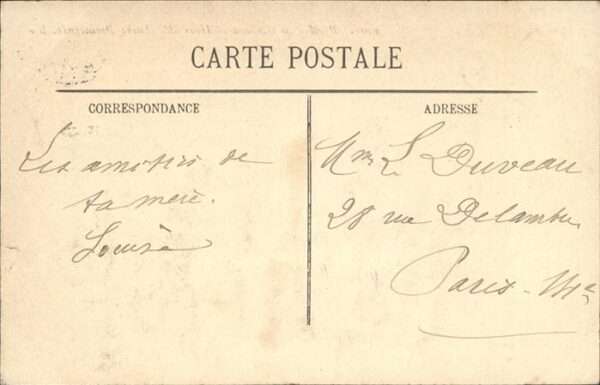 CARTE POSTALE
CORRESPONDANCE
ADRESSE
Les amitiés de
ta mère.
Louise
Mme L. Duveau
28 rue Delambre
Paris